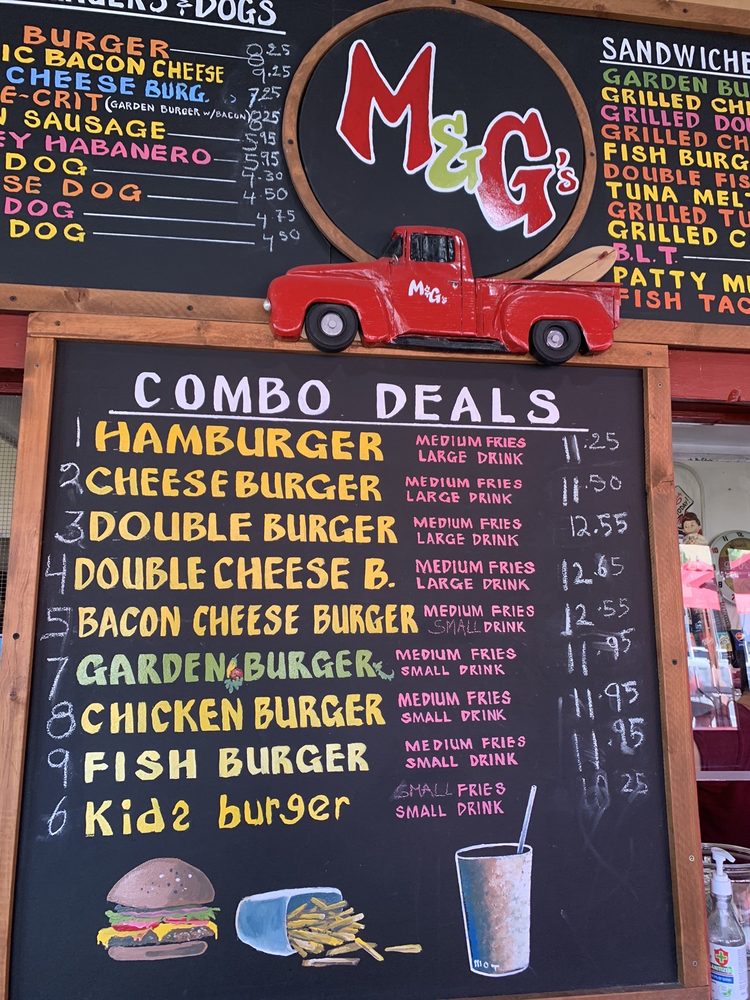 & DOGS
BURGER 8.25
IC BACON CHEESE 9.25
CHEESE BURG. 7.25
E-CRIT (GARDEN BURGER W/BACON) 8.25
N SAUSAGE 5.95
EY HABANERO 5.95
DOG 4.30
SE DOG 4.50
DOG 4.75
DOG 4.50
M&G's
SANDWICHE
GARDEN BU
GRILLED CH
GRILLED DO
GRILLED CH
FISH BURG
DOUBLE FIS
TUNA MEL
GRILLED TU
GRILLED C
B.L.T.
PATTY M
FISH TAC
M&G's
COMBO DEALS
1 HAMBURGER MEDIUM FRIES 11.25
LARGE DRINK
2 CHEESEBURGER MEDIUM FRIES 11.50
LARGE DRINK
3 DOUBLE BURGER MEDIUM FRIES 12.55
LARGE DRINK
4 DOUBLE CHEESE B. MEDIUM FRIES 12.65
LARGE DRINK
5 BACON CHEESE BURGER MEDIUM FRIES 12.55
SMALL DRINK
7 GARDEN BURGER MEDIUM FRIES 11.95
SMALL DRINK
8 CHICKEN BURGER MEDIUM FRIES 11.95
SMALL DRINK
9 FISH BURGER MEDIUM FRIES 11.95
SMALL DRINK
6 Kids burger SMALL FRIES 10.25
SMALL DRINK